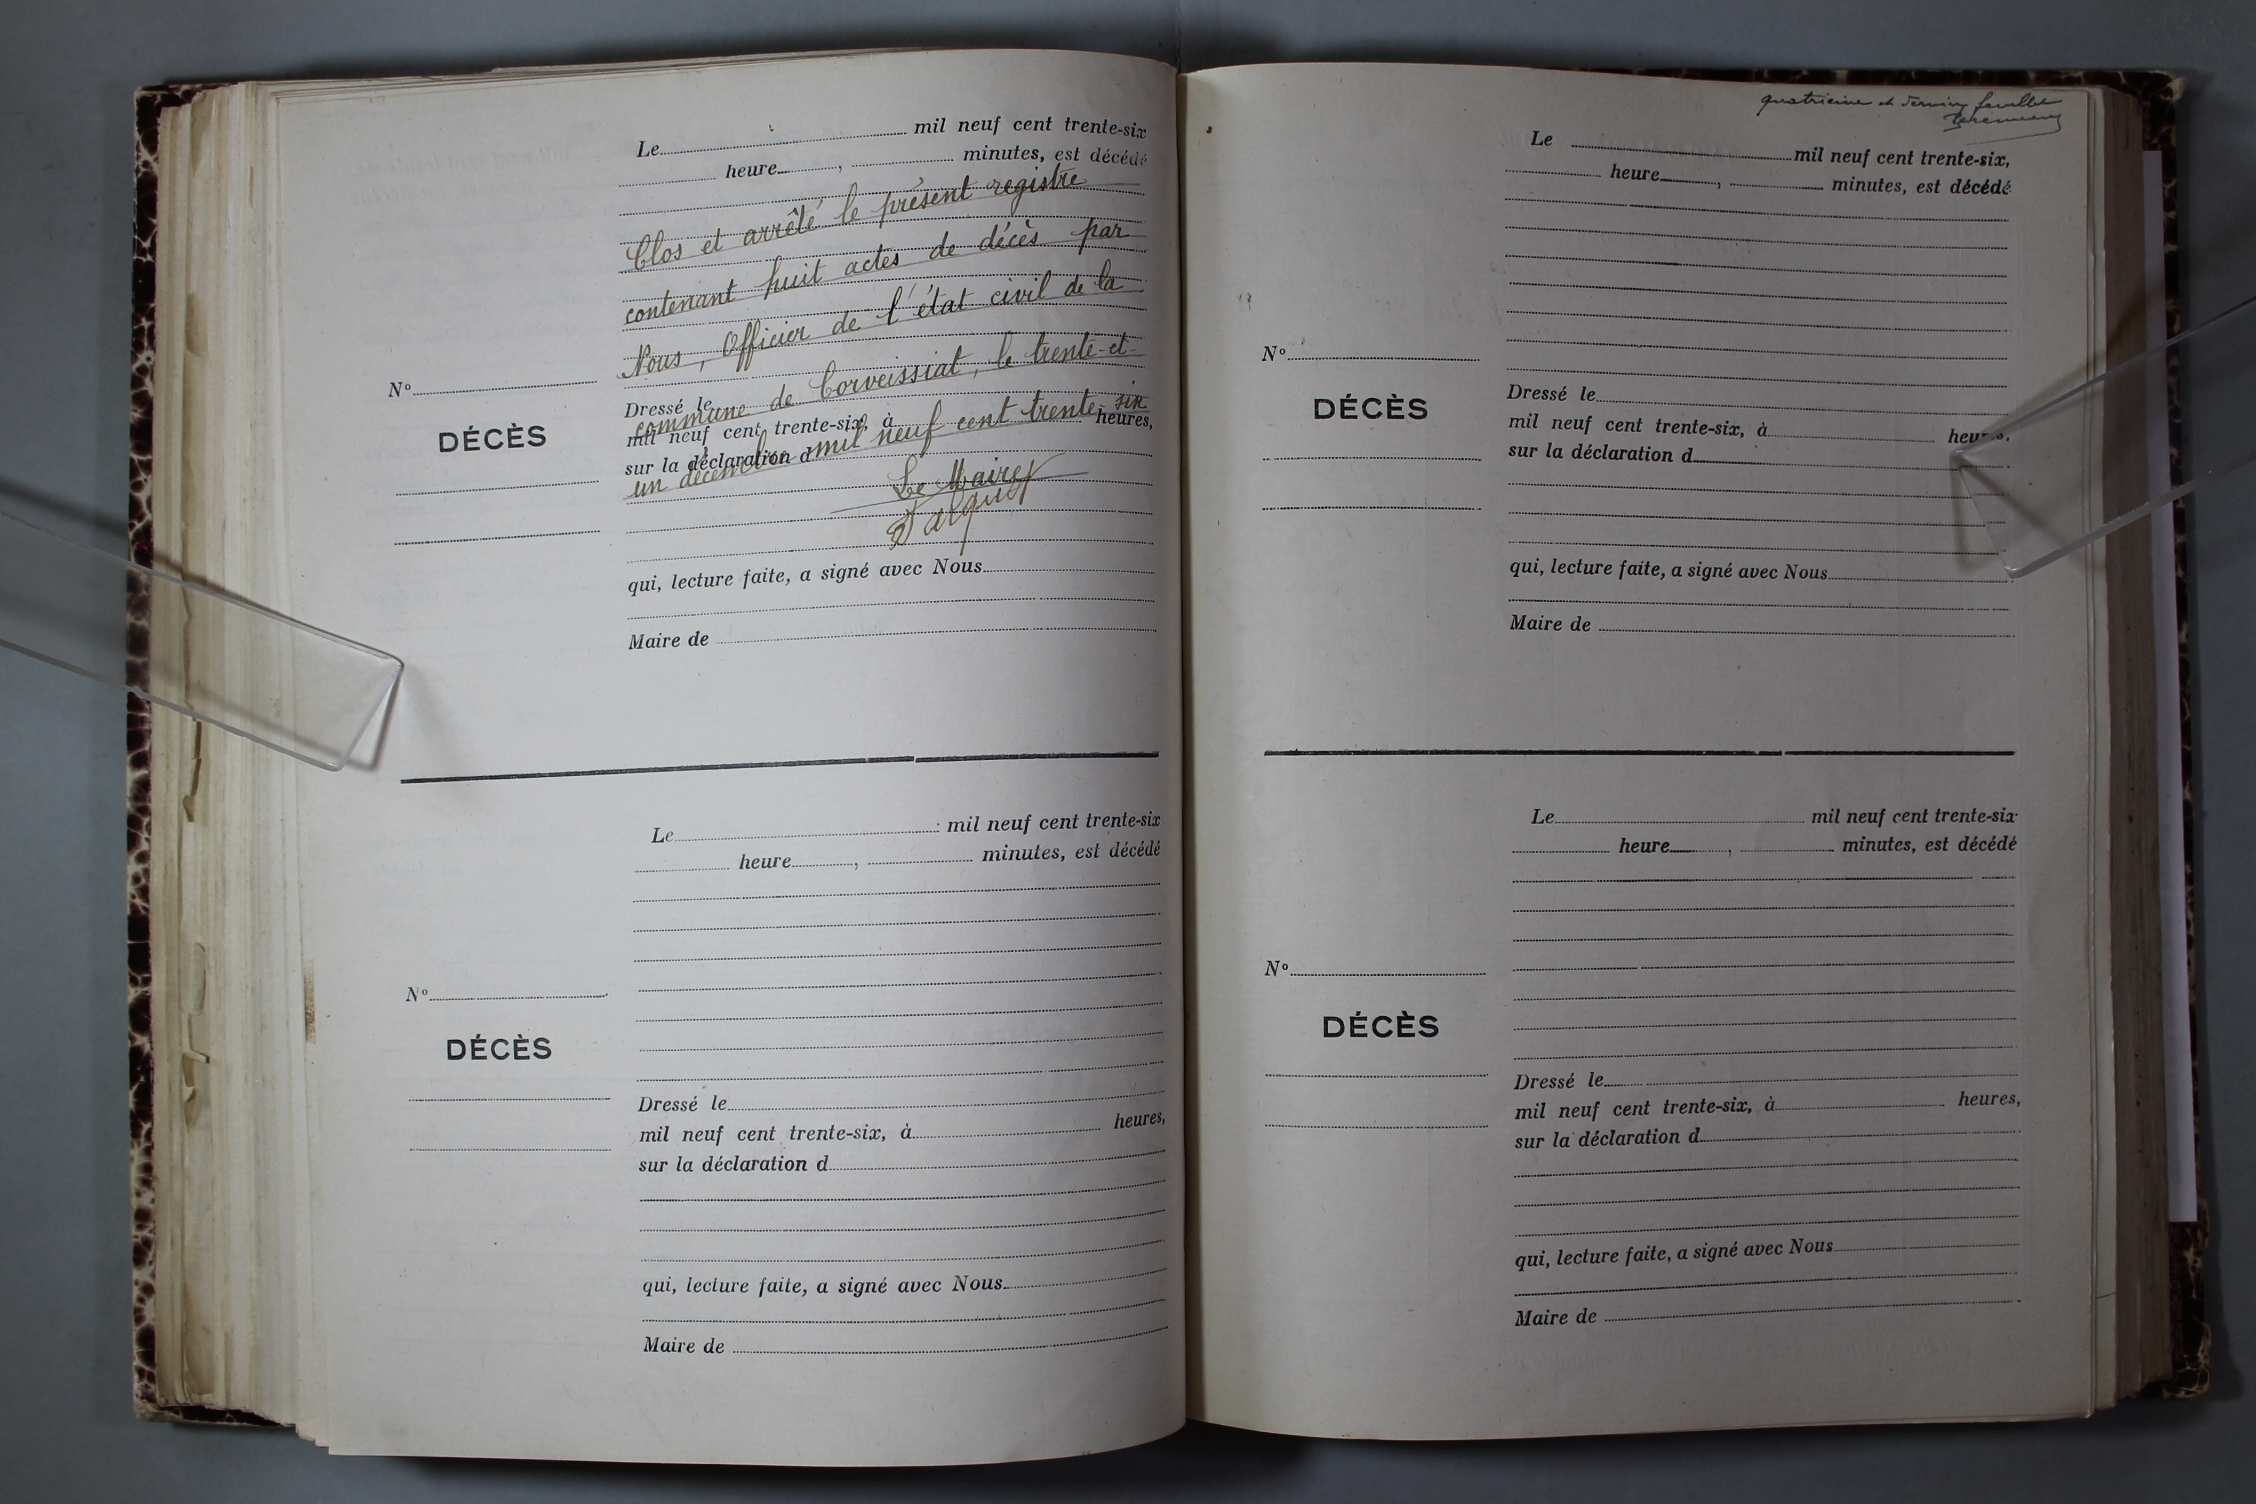 Le mil neuf cent trente-six
heure , minutes, est décédé
Clos et arrêté le présent registre
contenant huit actes de décès par
Nous, Officier de l'état civil de la
commune de Corveissiat, le trente-et-
un décembre mil neuf cent trente-six
Le Maire
N°
DÉCÈS
Dressé le
mil neuf cent trente-six, à heures,
sur la déclaration d
qui, lecture faite, a signé avec Nous
Maire de
Le mil neuf cent trente-six
heure , minutes, est décédé
N°
DÉCÈS
Dressé le
mil neuf cent trente-six, à heures,
sur la déclaration d
qui, lecture faite, a signé avec Nous
Maire de
quatrième et dernier feuillet
Le mil neuf cent trente-six,
heure , minutes, est décédé
N°
DÉCÈS
Dressé le
mil neuf cent trente-six, à heures,
sur la déclaration d
qui, lecture faite, a signé avec Nous
Maire de
Le mil neuf cent trente-six
heure , minutes, est décédé
N°
DÉCÈS
Dressé le
mil neuf cent trente-six, à heures,
sur la déclaration d
qui, lecture faite, a signé avec Nous
Maire de